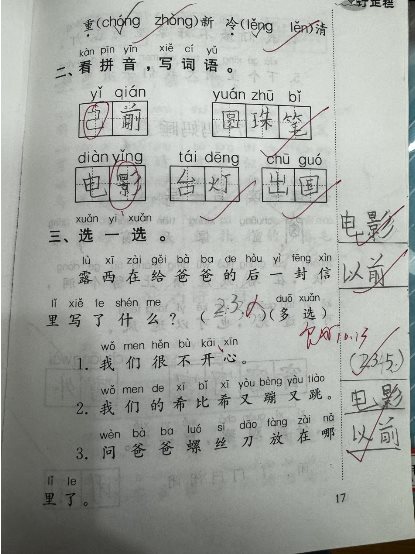 订正栏
重(chóng zhòng)新 冷(lěng lěn)清
kàn pīn yīn xiě cí yǔ
二、看拼音，写词语。
yǐ qián yuán zhū bǐ
前 圆珠笔
diàn yǐng tái dēng chū guó
电影 台灯 出国
电影
xuǎn yi xuǎn
三、选一选。
以前
lù xī zài gěi bà ba de hòu yì fēng xìn
露西在给爸爸的后一封信
lǐ xiě le shén me duō xuǎn
里写了什么？(2.3.)(多选)
10.13
wǒ men hěn bù kāi xīn
1. 我们很不开心。
(2.3.5.)
wǒ men de xī bǐ xī yòu bèng yòu tiào
2. 我们的希比希又蹦又跳。
电影
wèn bà ba luó sī dāo fàng zài nǎ
3. 问爸爸螺丝刀放在哪
以前
lǐ le
里了。
17